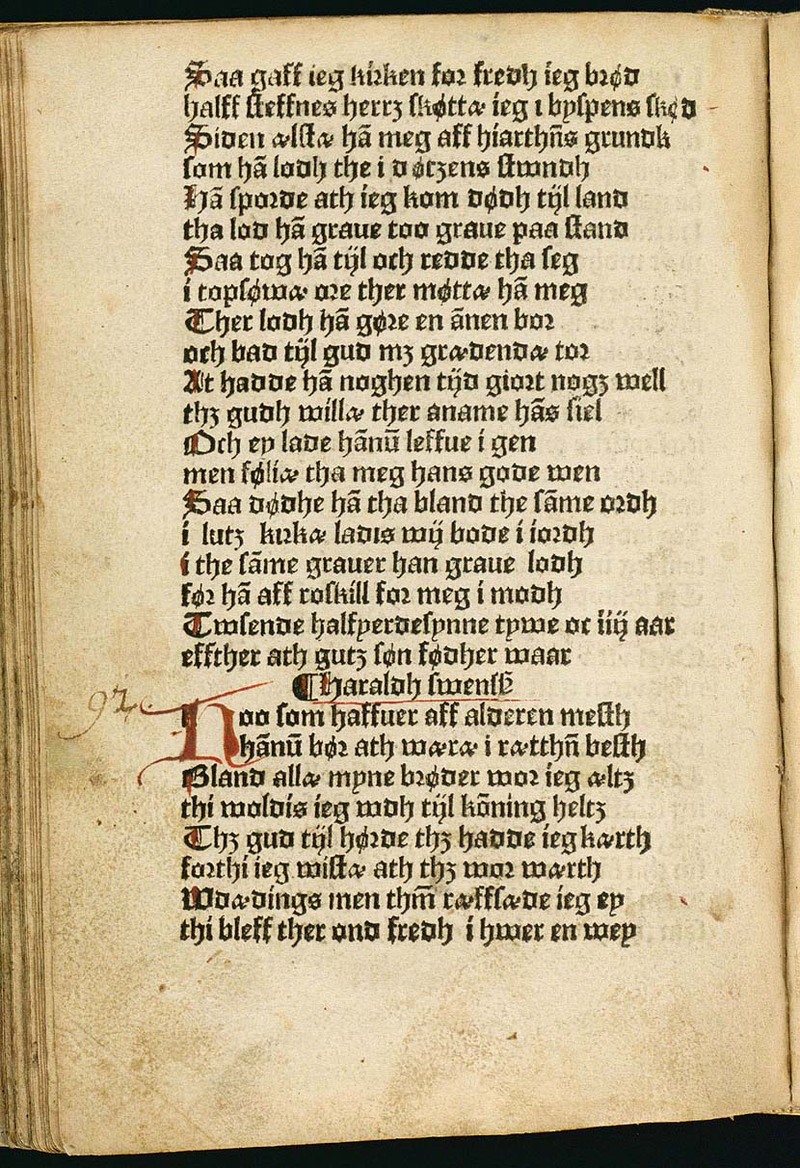 Saa gaff ieg kirken for fredh ieg brød
halff steffnes herrꝫ skøttæ ieg ı byspens skød
Siden ælstæ hā meg aff hiarthn̄s grundk
som hā lodh the i døtzens stwndh
Hā sporde ath ieg kom dødh tijl land
tha lod hā graue too graue paa stand
Saa tog hā tijl och redde tha seg
i topsøwæ ore ther møttæ hā meg
Ther lodh hā gøre en ānen bor
och bad tijl gud mꝫ grædendæ tor
At hadde hā noghen tijd giort nogꝫ well
thꝫ gudh willæ ther aname hās siel
Och ey lade hānū leffue i gen
men føliæ tha meg hans gode wen
Saa dødhe hā tha bland the sāme ordh
i lutꝫ kirkæ ladis wij bode i iordh
i the sāme grauer han graue lodh
før hā aff roskill for meg i modh
Twsende halfyerdesynne tywe oc iiij aar
effther ath gutz søn fødher waar
¶Haraldh swensē
92
Hoo som haffuer aff alderen mesth
hānū bør ath wæræ i rætthn̄ besth
Bland allæ myne brøder wor ieg æltꝫ
thi woldis ieg wdh tijl kōning heltꝫ
Thꝫ gud tijl hørde thꝫ hadde ieg kærth
forthi ieg wistæ ath thꝫ wor wærth
Wdædings men thm̄ ræffsæde ieg ey
thi bleff ther ond fredh i hwer en wey